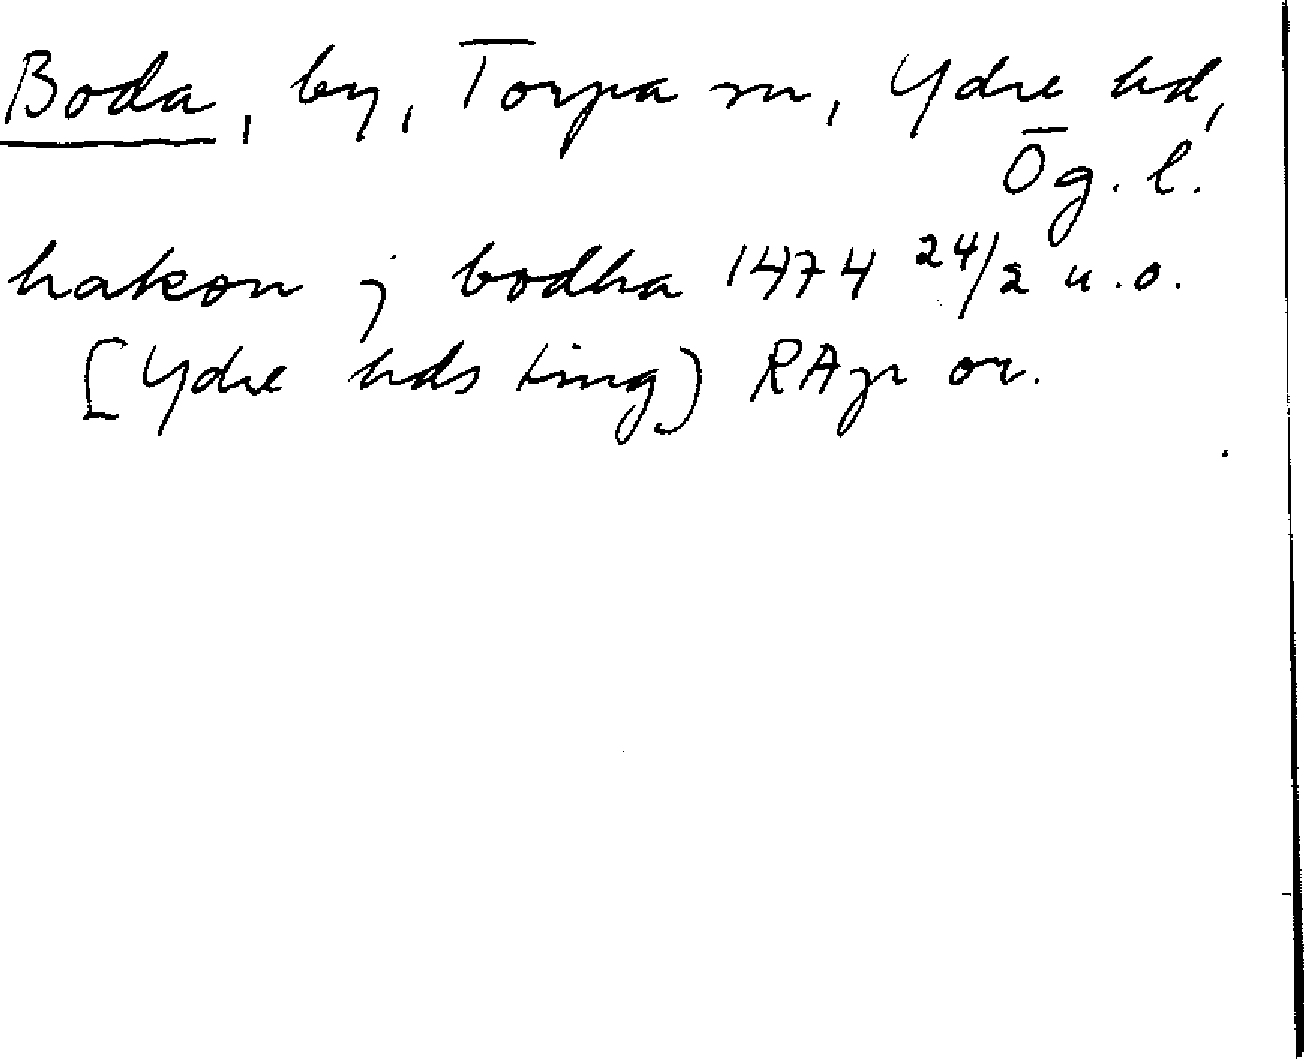 Boda, by, Torpa sn, Ydre hd,
Ög. l.
hakon j bodha 1474 24/2 u.o.
(Ydre hds ting) RAp or.